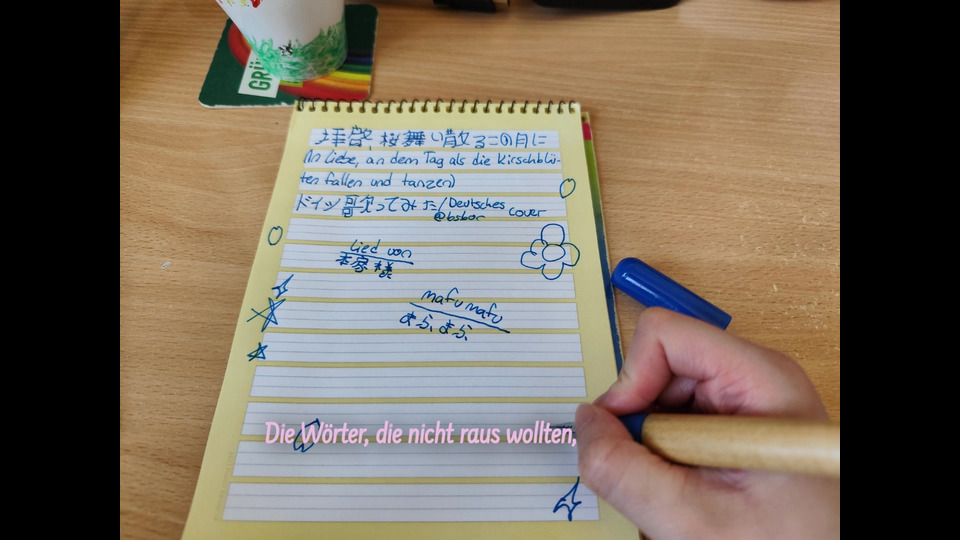 GRÜ
拝啓、桜舞い散るこの月に
(In Liebe, an dem Tag als die Kirschblü-
ten fallen und tanzen)
ドイツ歌ってみた/Deutsches
@bsbor cover
Lied von
本家様
mafumafu
まふまふ
Die Wörter, die nicht raus wollten,